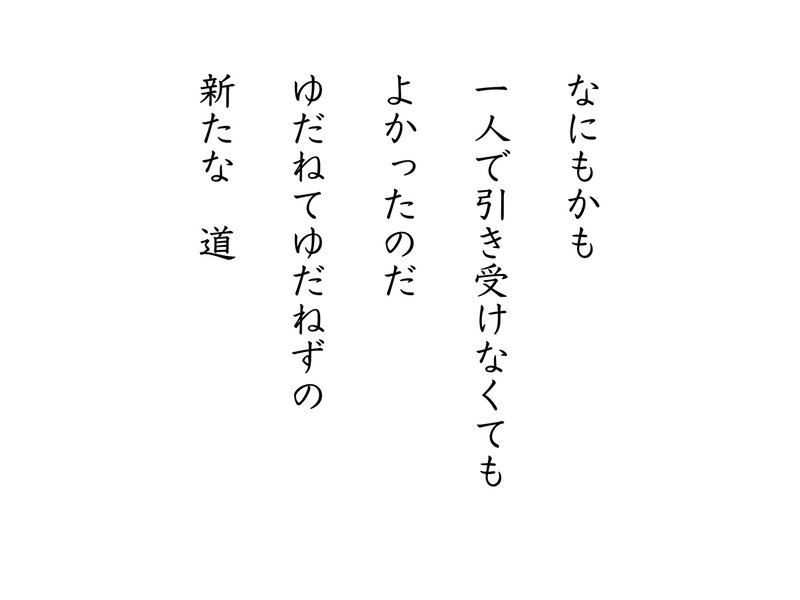 なにもかも
一人で引き受けなくても
よかったのだ
ゆだねてゆだねずの
新たな　道